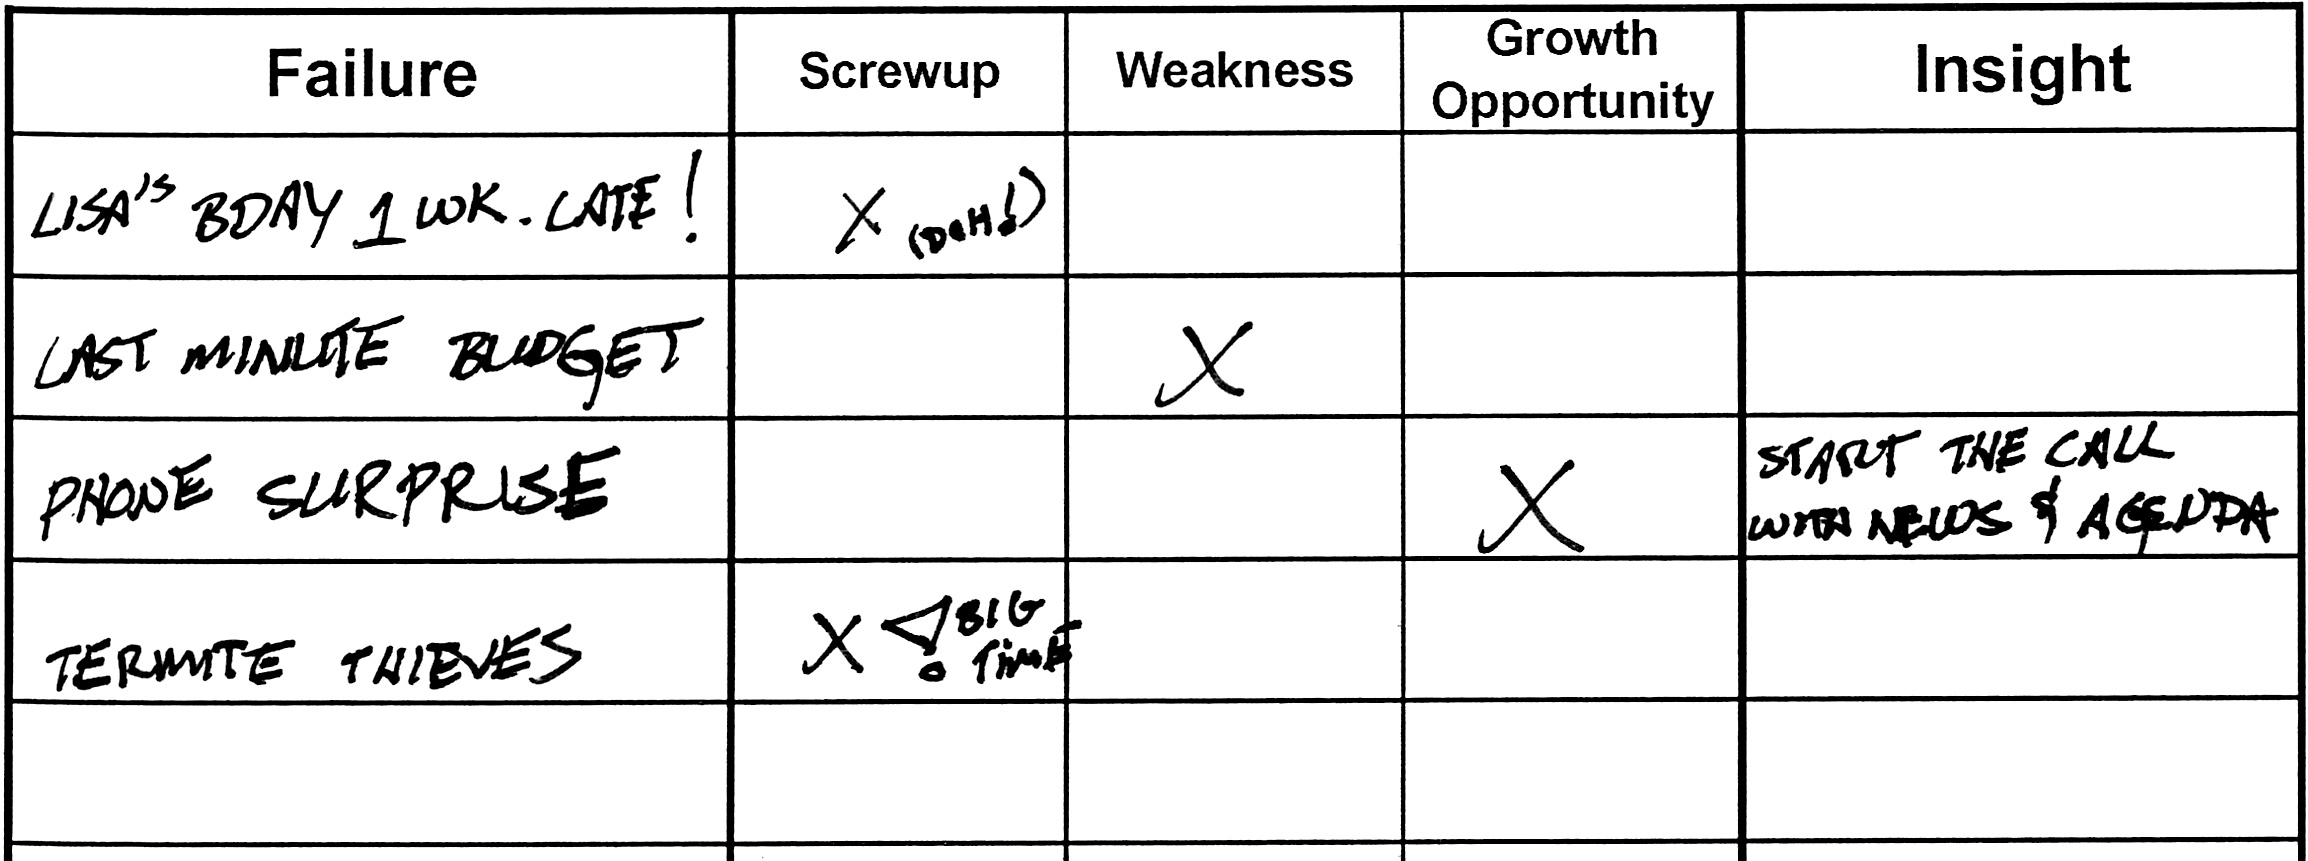 Failure Screwup Weakness Growth Opportunity Insight
LISA'S BDAY 1 WK. LATE! X (DUH!)
LAST MINUTE BUDGET X
PHONE SURPRISE X START THE CALL
WITH NEWS & AGENDA
TERMITE THIEVES X BIG
TIME